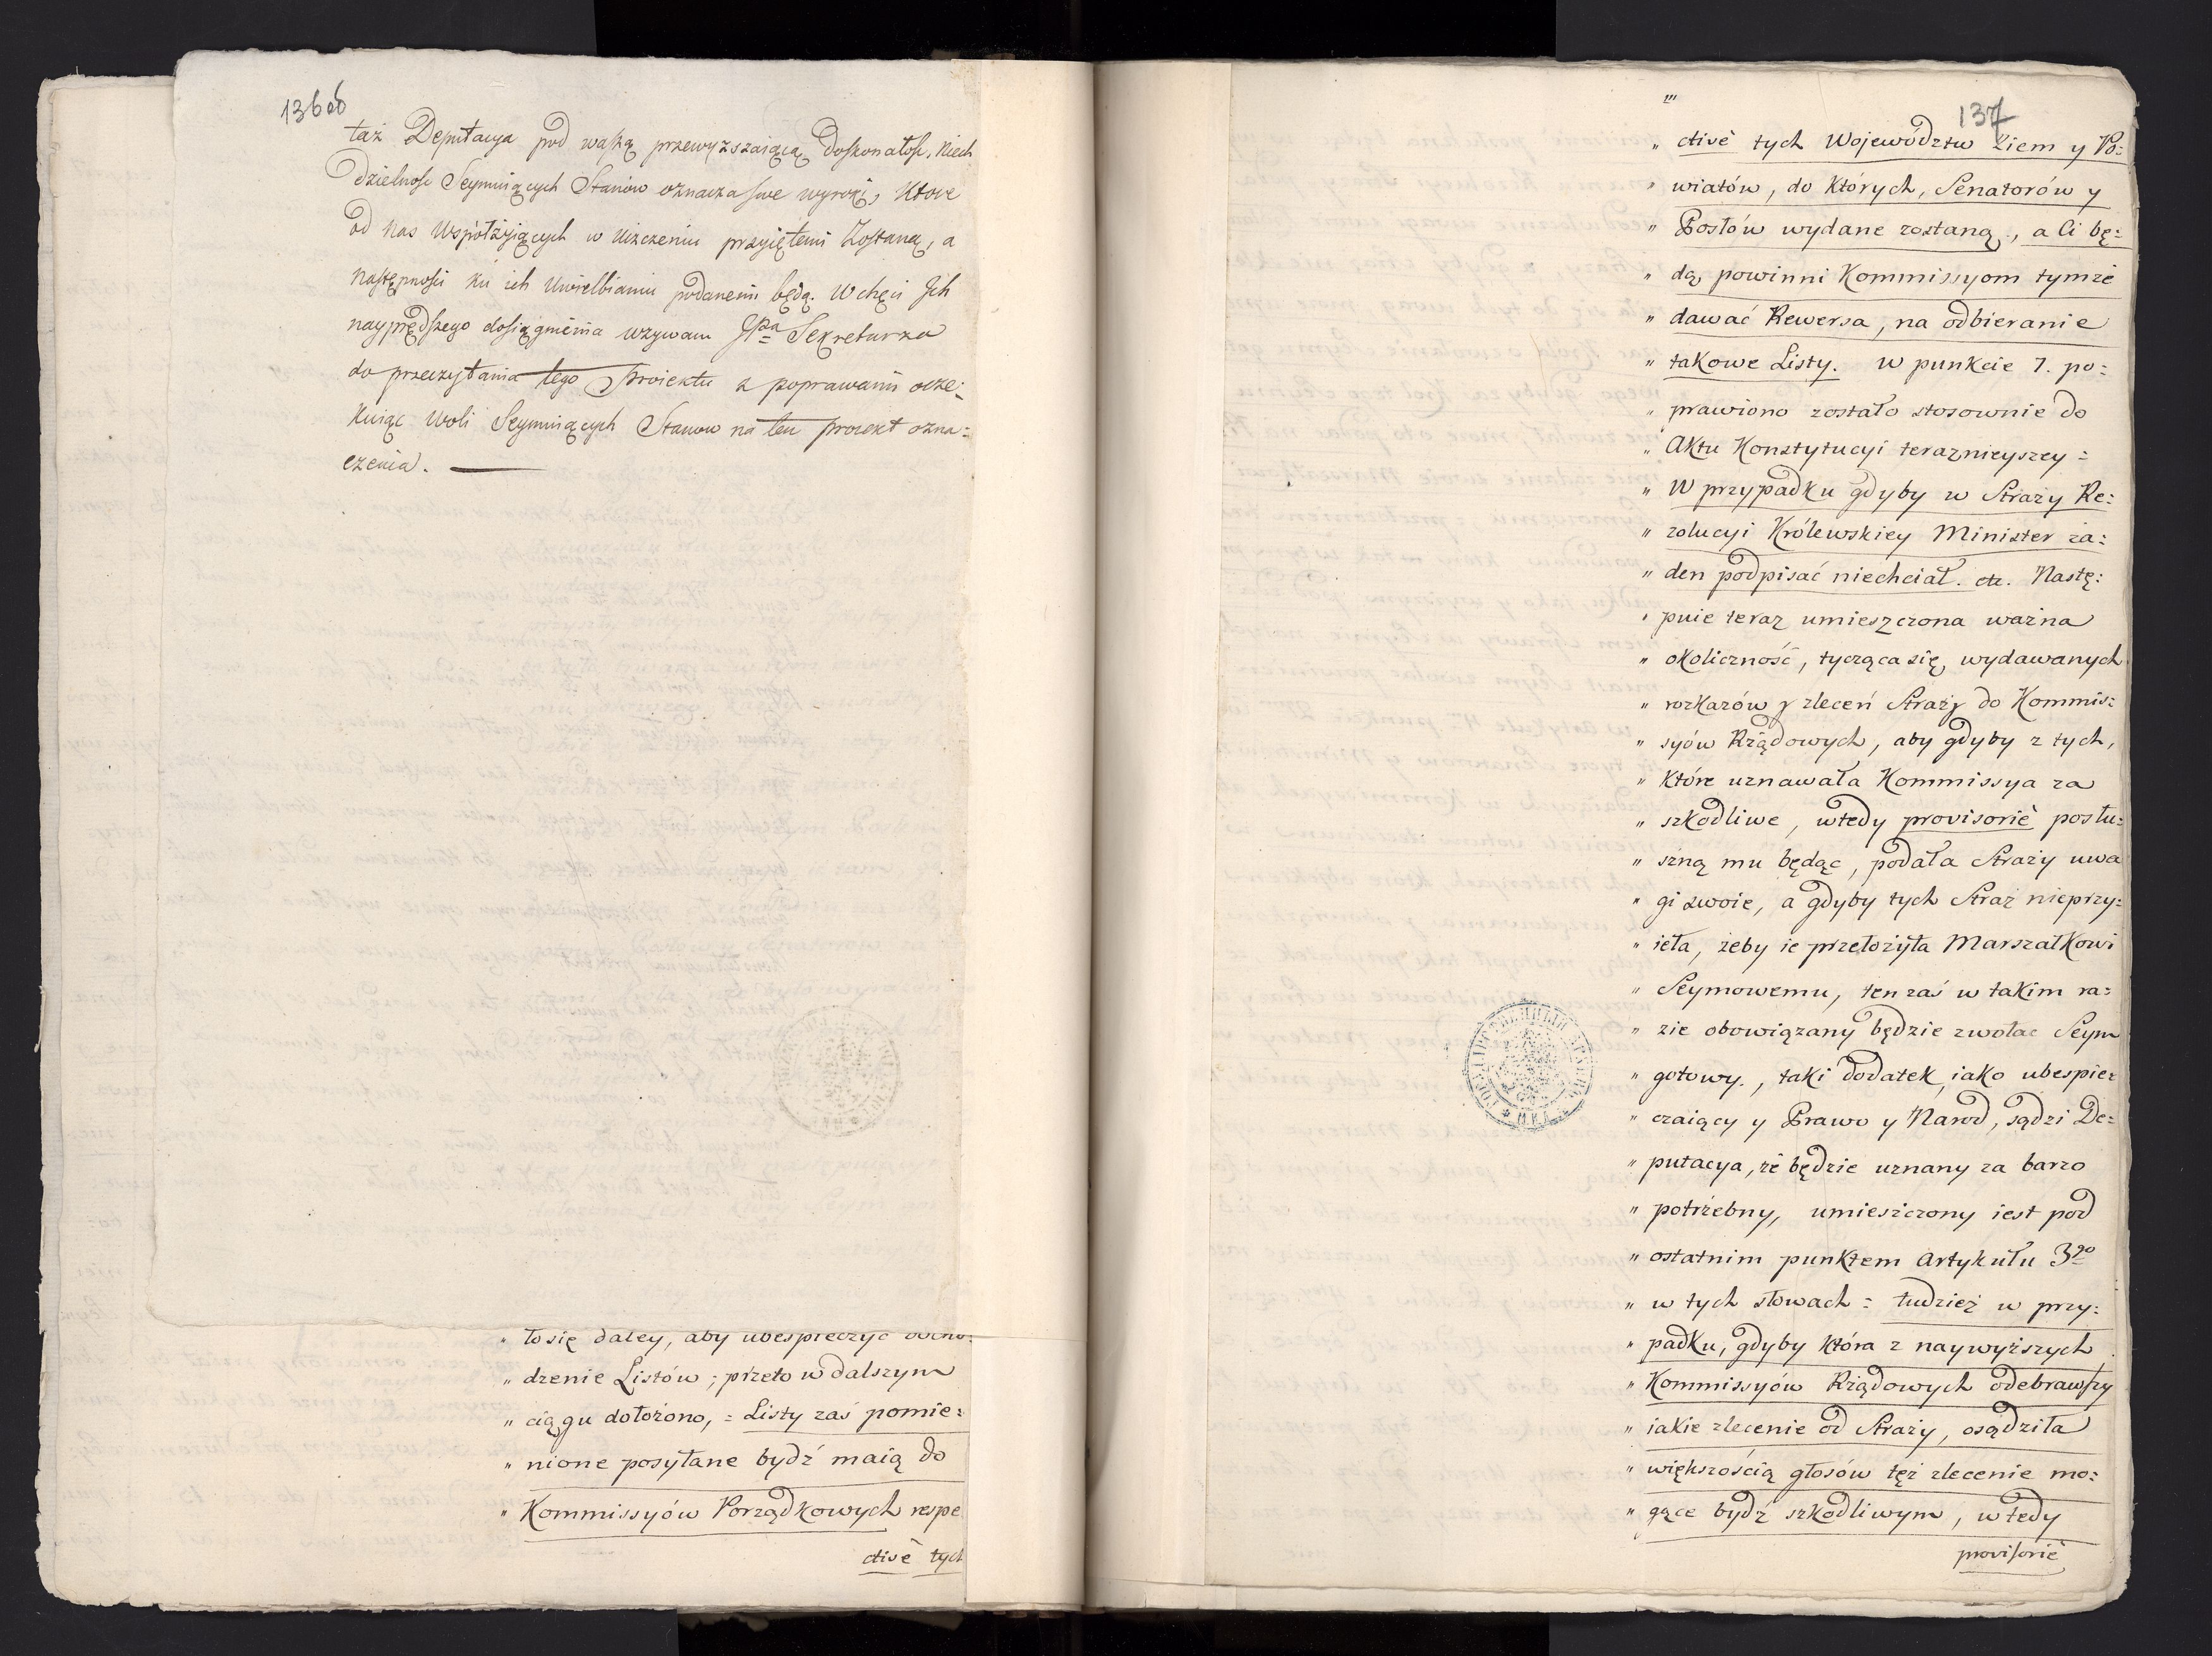 136
taż Deputacya pod waszą przewyższaiącą doskonałość. Niech
dzielność Seymuiących Stanów oznacza swe wyroki, które
od nas Współżyiących w uiszczeniu przyiętemi Zostaną, a
następności ku ich Uwielbianiu podanemi będą. W chęci Ich
nayprędszego dosiągnienia wzywam JPa Sekretarza
do przeczytania tego Proiektu z poprawami ocze=
kuiąc Woli Seymuiących Stanow na ten proiekt ozna=
czenia.
" to się daley, aby ubespieczyć
" dzenie Listów; przeto w dalszym
" ciągu dołożono, = Listy zaś pomie=
" nione posyłane bydź maią do
" Kommissyów Porządkowych respe
ctivè tych
137
" ctivè tych Województw Ziem y Po=
" wiatów, do których, Senatorów y
" Posłów wydane zostaną, a Ci bę=
" dą powinni Kommissyom tymże
" dawać Rewersa, na odbieranie
" takowe Listy. w punkcie 7. po=
" prawiono zostało stosownie do
" Aktu Konstytucyi teraznieyszey =
" W przypadku gdyby w Straży Re=
" zolucyi Królewskiey Minister ża=
" den podpisać niechciał. etc. Nastę=
" puie teraz umieszczona ważna
" okoliczność, tycząca się, wydawanych
" rozkazów y zleceń Straży do Kommis=
" syów Rządowych, aby gdyby z tych,
" które uznawała Kommissya za
" szkodliwe, wtedy provisoriè posłu=
" szną mu będąc, podała Straży uwa
" gi swoie, a gdyby tych Straż nieprzy=
" ieła, żeby ie przełożyła Marszałkowi
" Seymowemu, ten zaś w takim ra=
" zie obowiązany będzie zwołac Seym
" gotowy., taki dodatek, iako ubespie=
" czaiący y Prawo y Narod, sądzi De=
" putacya, że będzie uznany za barzo
" potrzebny, umieszczony iest pod
" ostatnim punktem Artykułu 3go
" w tych słowach = tudzież w przy=
" padku, gdyby która z naywyższych
" Kommissyów Rządowych odebrawszy
" iakie zlecenie od Straży, osądziła
" większością głosów też zlecenie mo=
" gące bydź szkodliwym, wtedy
provisoriè